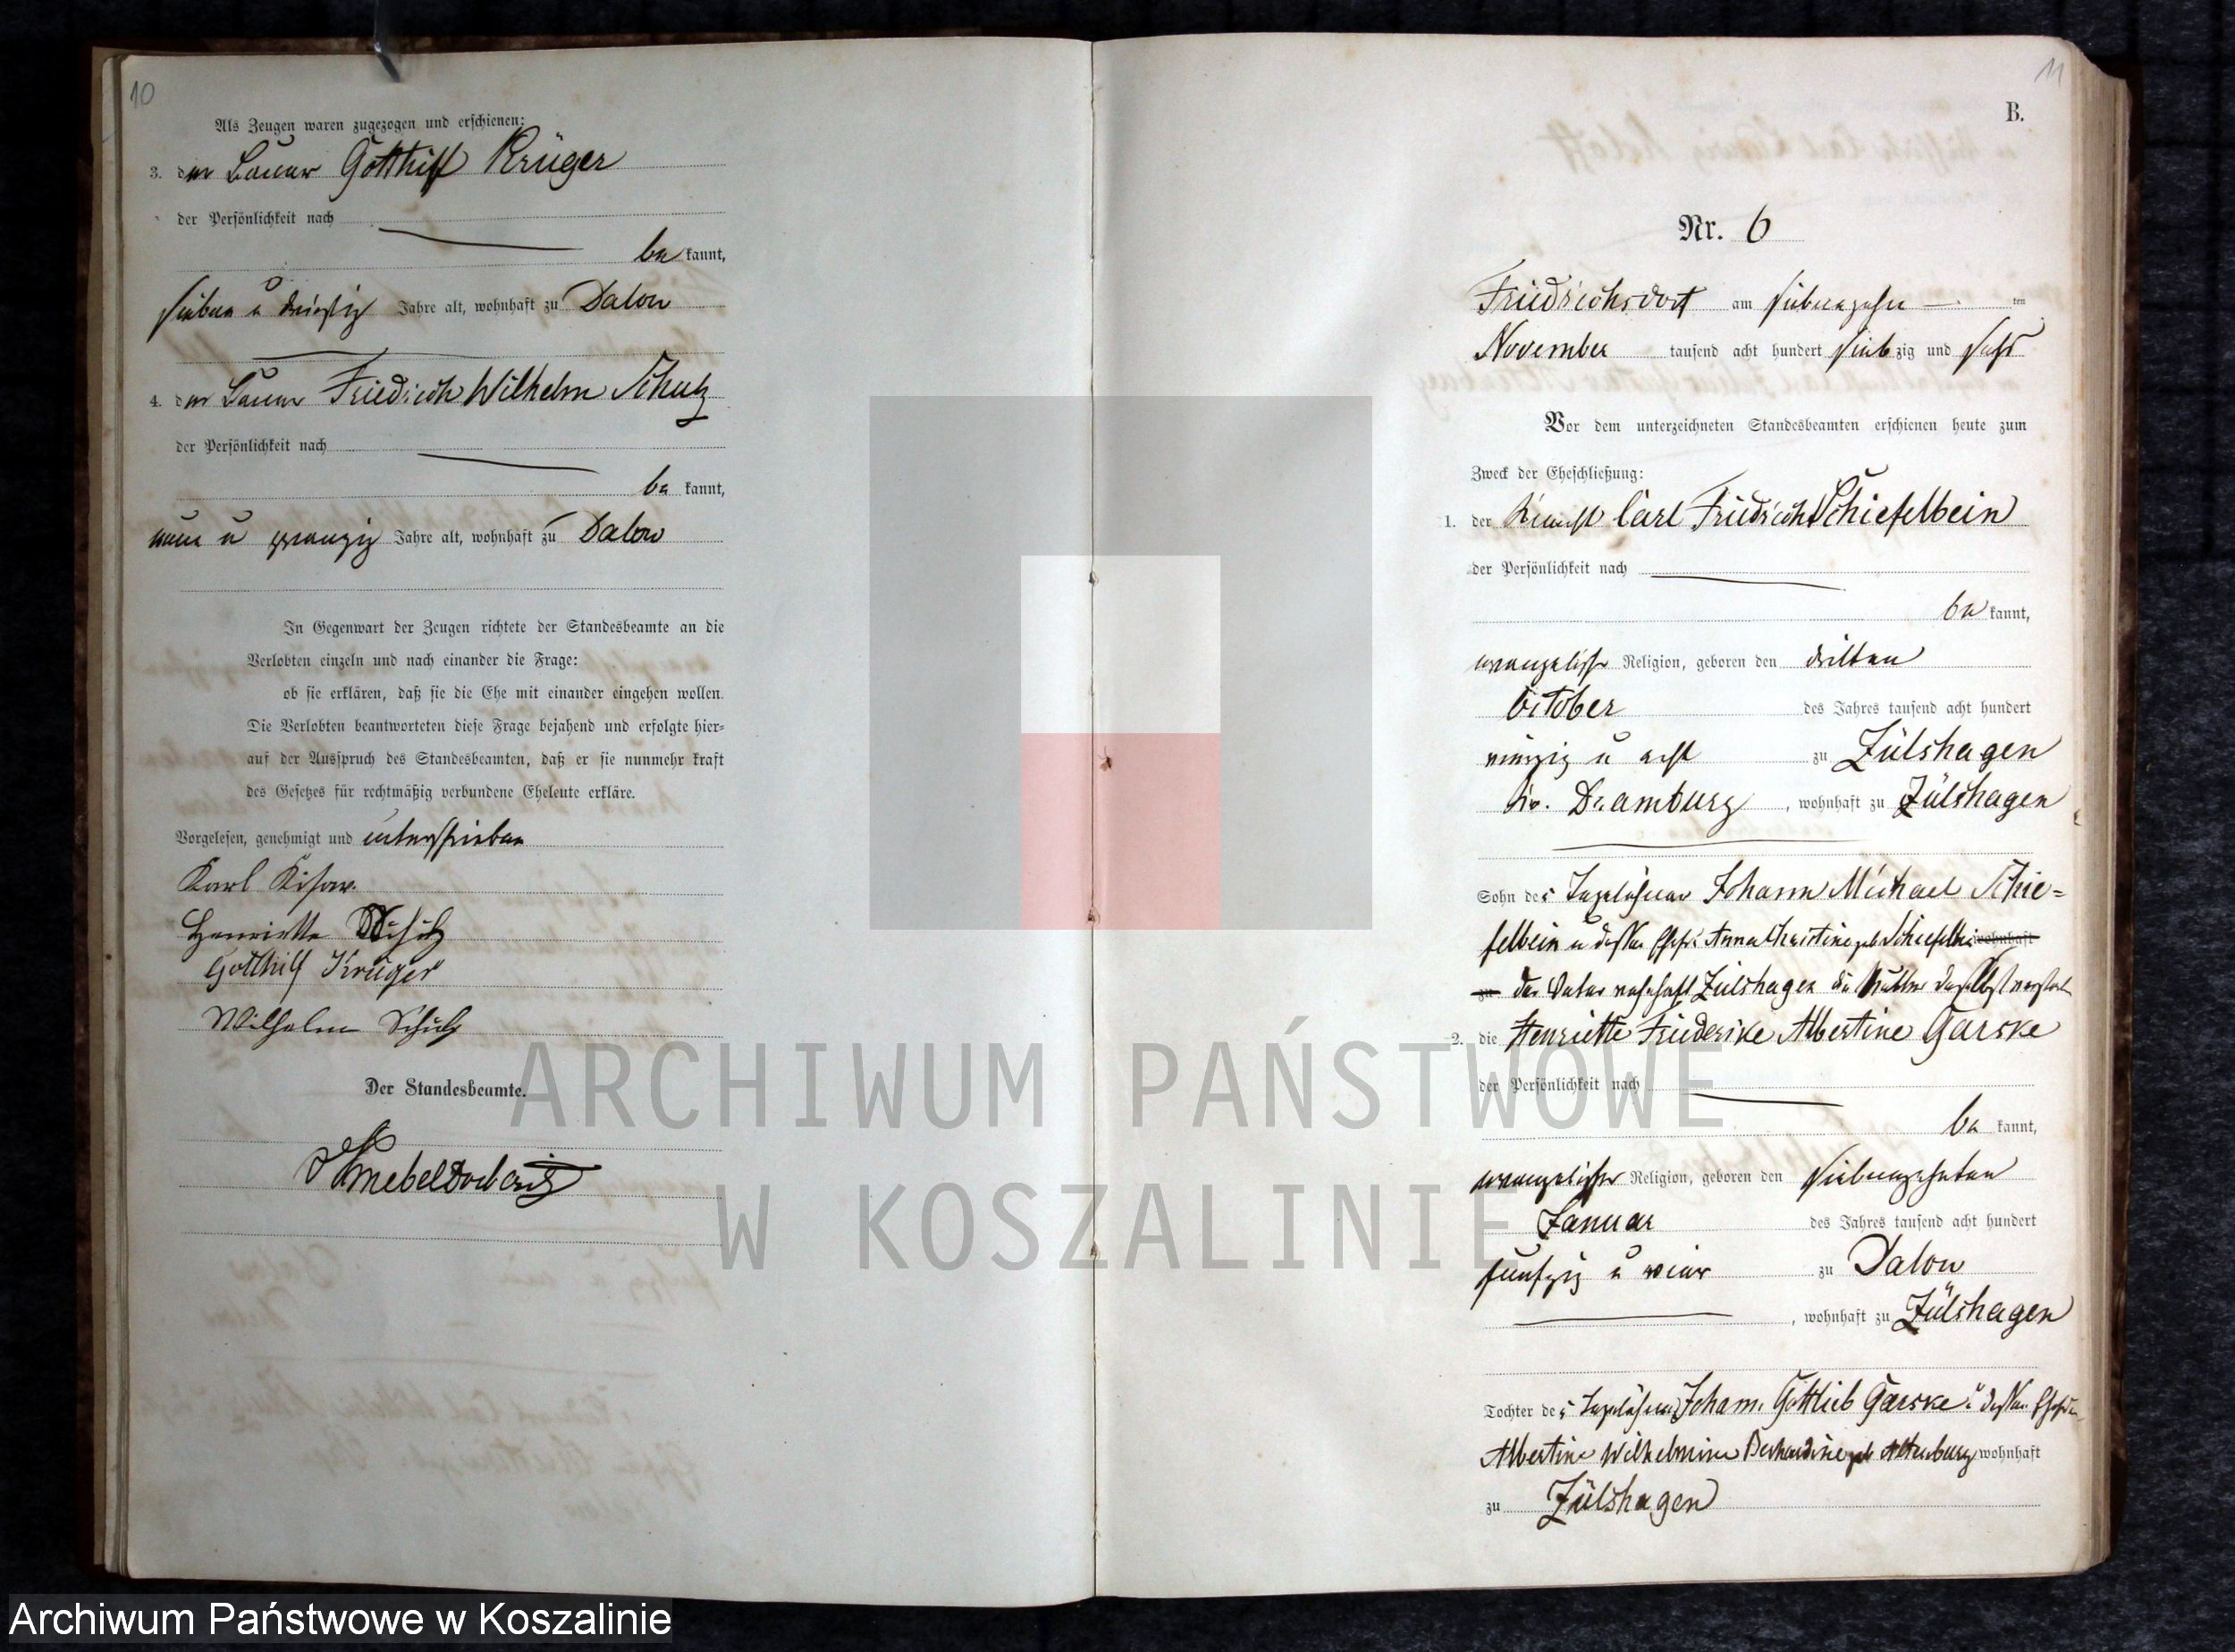 10
Als Zeugen waren zugezogen und erschienen:
3. der Bauer Gotthilf Krüger
der Persönlichkeit nach
be kannt,
sieben u dreißig Jahre alt, wohnhaft zu Dalow
4. der Bauer Friedrich Wilhelm Schulz
der Persönlichkeit nach
be kannt,
neun u zwanzig Jahre alt, wohnhaft zu Dalow
In Gegenwart der Zeugen richtete der Standesbeamte an die
Verlobten einzeln und nach einander die Frage:
ob sie erklären, daß sie die Ehe mit einander eingehen wollen.
Die Verlobten beantworteten diese Frage bejahend und erfolgte hier-
auf der Ausspruch des Standesbeamten, daß er sie nunmehr kraft
des Gesetzes für rechtmäßig verbundene Eheleute erkläre.
Vorgelesen, genehmigt und unterschrieben
Karl
Henriette Schulz
Gotthilf Krüger
Wilhelm Schulz
Der Standesbeamte.
11
B.
Nr. 6
Friedrichsdorf am siebenzehn ten
November tausend acht hundert siebzig und sechs
Vor dem unterzeichneten Standesbeamten erschienen heute zum
Zweck der Eheschließung:
1. der Knecht Carl Friedrich Schiefelbein
der Persönlichkeit nach
be kannt,
evangelischer Religion, geboren den dritten
October des Jahres tausend acht hundert
vierzig u acht zu Zülshagen
Kr. Dramburg, wohnhaft zu Zülshagen
Sohn des Tagelöhner Johann Michael Schie=
felbein u dessen Ehefr. Anna Christine geb Schiefelbein wohnhaft
zu der Vater wohnhaft Zülshagen die Mutter daselbst verstorb
2. die Henriette Friederike Albertine Garske
der Persönlichkeit nach
be kannt,
evangelischer Religion, geboren den siebenzehnten
Januar des Jahres tausend acht hundert
funfzig u vier zu Dalow
, wohnhaft zu Zülshagen
Tochter des Tagelöhner Johann Gottlieb Garske u dessen Ehefrau
Albertine Wilhelmine Bernhardine geb Altenburg wohnhaft
zu Zülshagen
ARCHIWUM PAŃSTWOWE
W KOSZALINIE
Archiwum Państwowe w Koszalinie